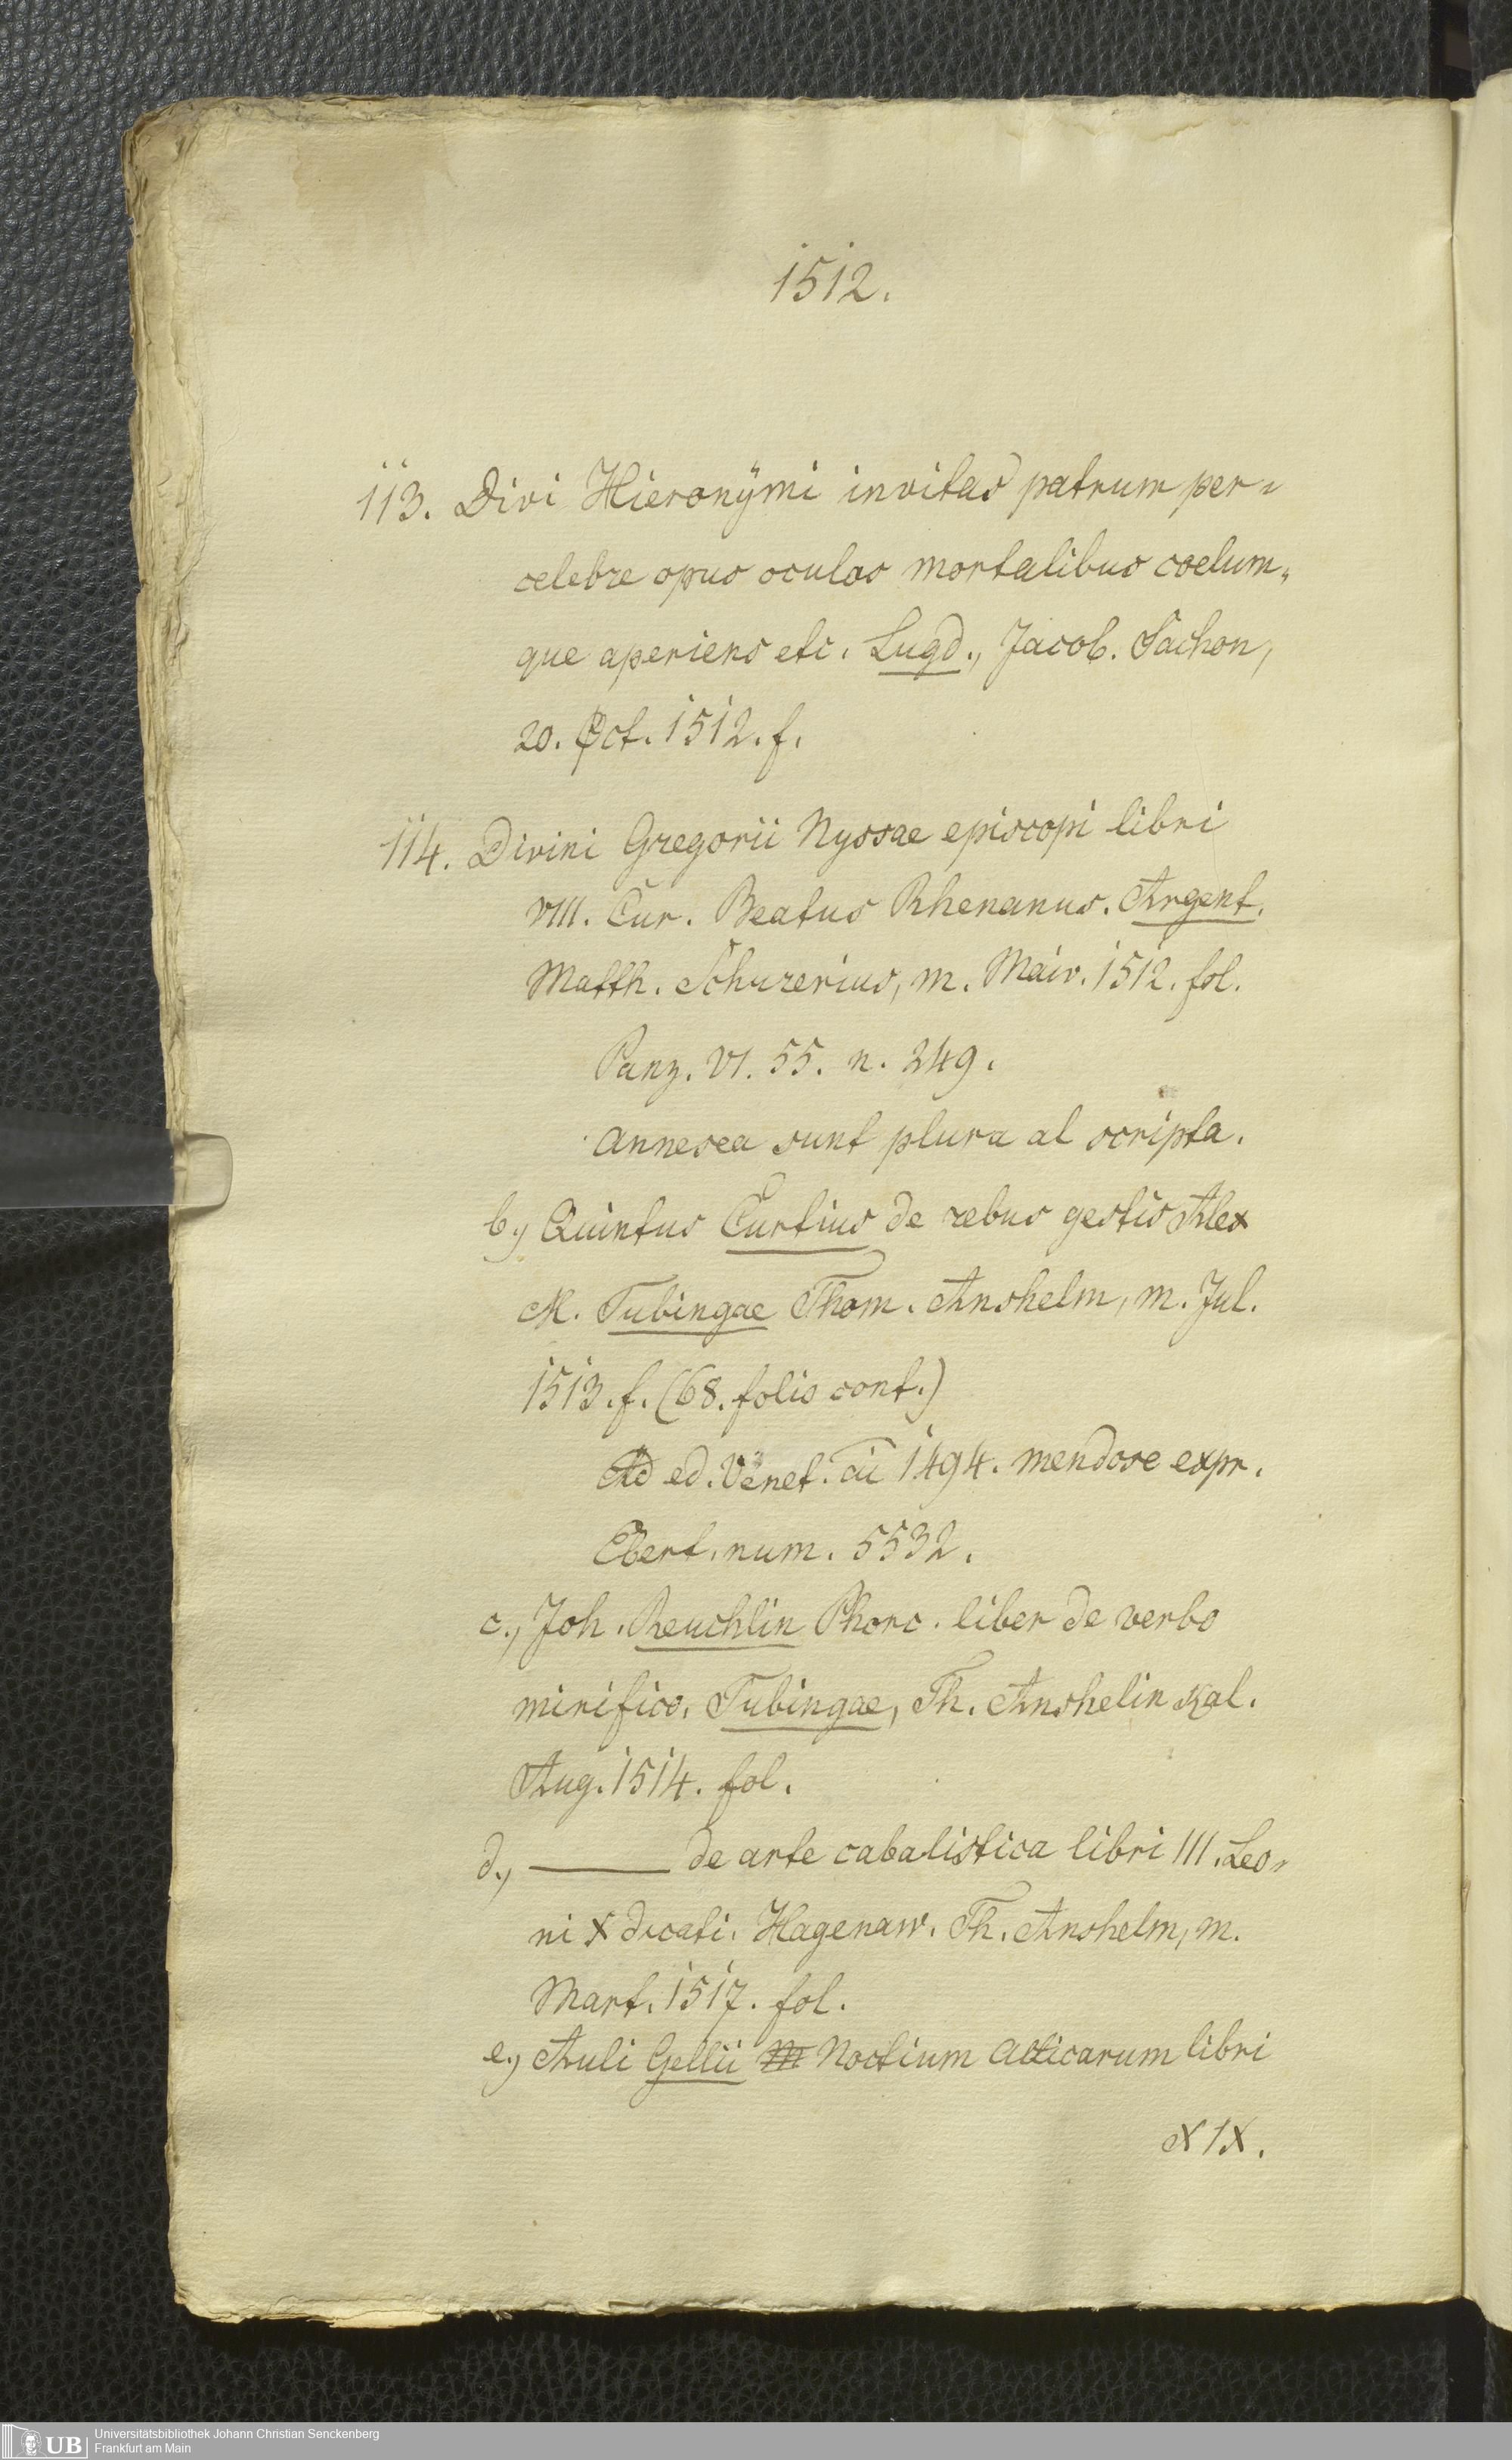 1512.
113. Divi Hieronÿmi invitas patrum per-
celebre opus oculos mortalibus coelum-
que aperiens etc. Lugd., Jacob. Sachon,
20. Oct. 1512. f.
114. Divini Gregorii Nyssae episcopi libri
VIII. Cur. Beatus Rhenanus. Argent.
Matth. Schurerius, m. Maio. 1512. fol.
Panz. VI. 55. n. 249.
Annexa sunt plura al scripta.
b.) Quintus Curtius de rebus gestis Alex
M. Tubingae Thom. Anshelm, m. Jul.
1513. f. (68. folis cont.)
Ad ed. Venet. ai 1494. mendose expr.
Ebert. num. 5532.
c.) Joh. Reuchlin Phorc. liber de verbo
mirifico. Tubingae, Th. Anshelin Kal.
Aug. 1514. fol.
d.) ——— de arte cabalistica libri III. Leo-
ni X dicati. Hagenaw. Th. Anshelm, m.
Mart. 1517. fol.
e.) Auli Gellii Noctium Atticarum libri
XIX.
UB Universitätsbibliothek Johann Christian Senckenberg
Frankfurt am Main